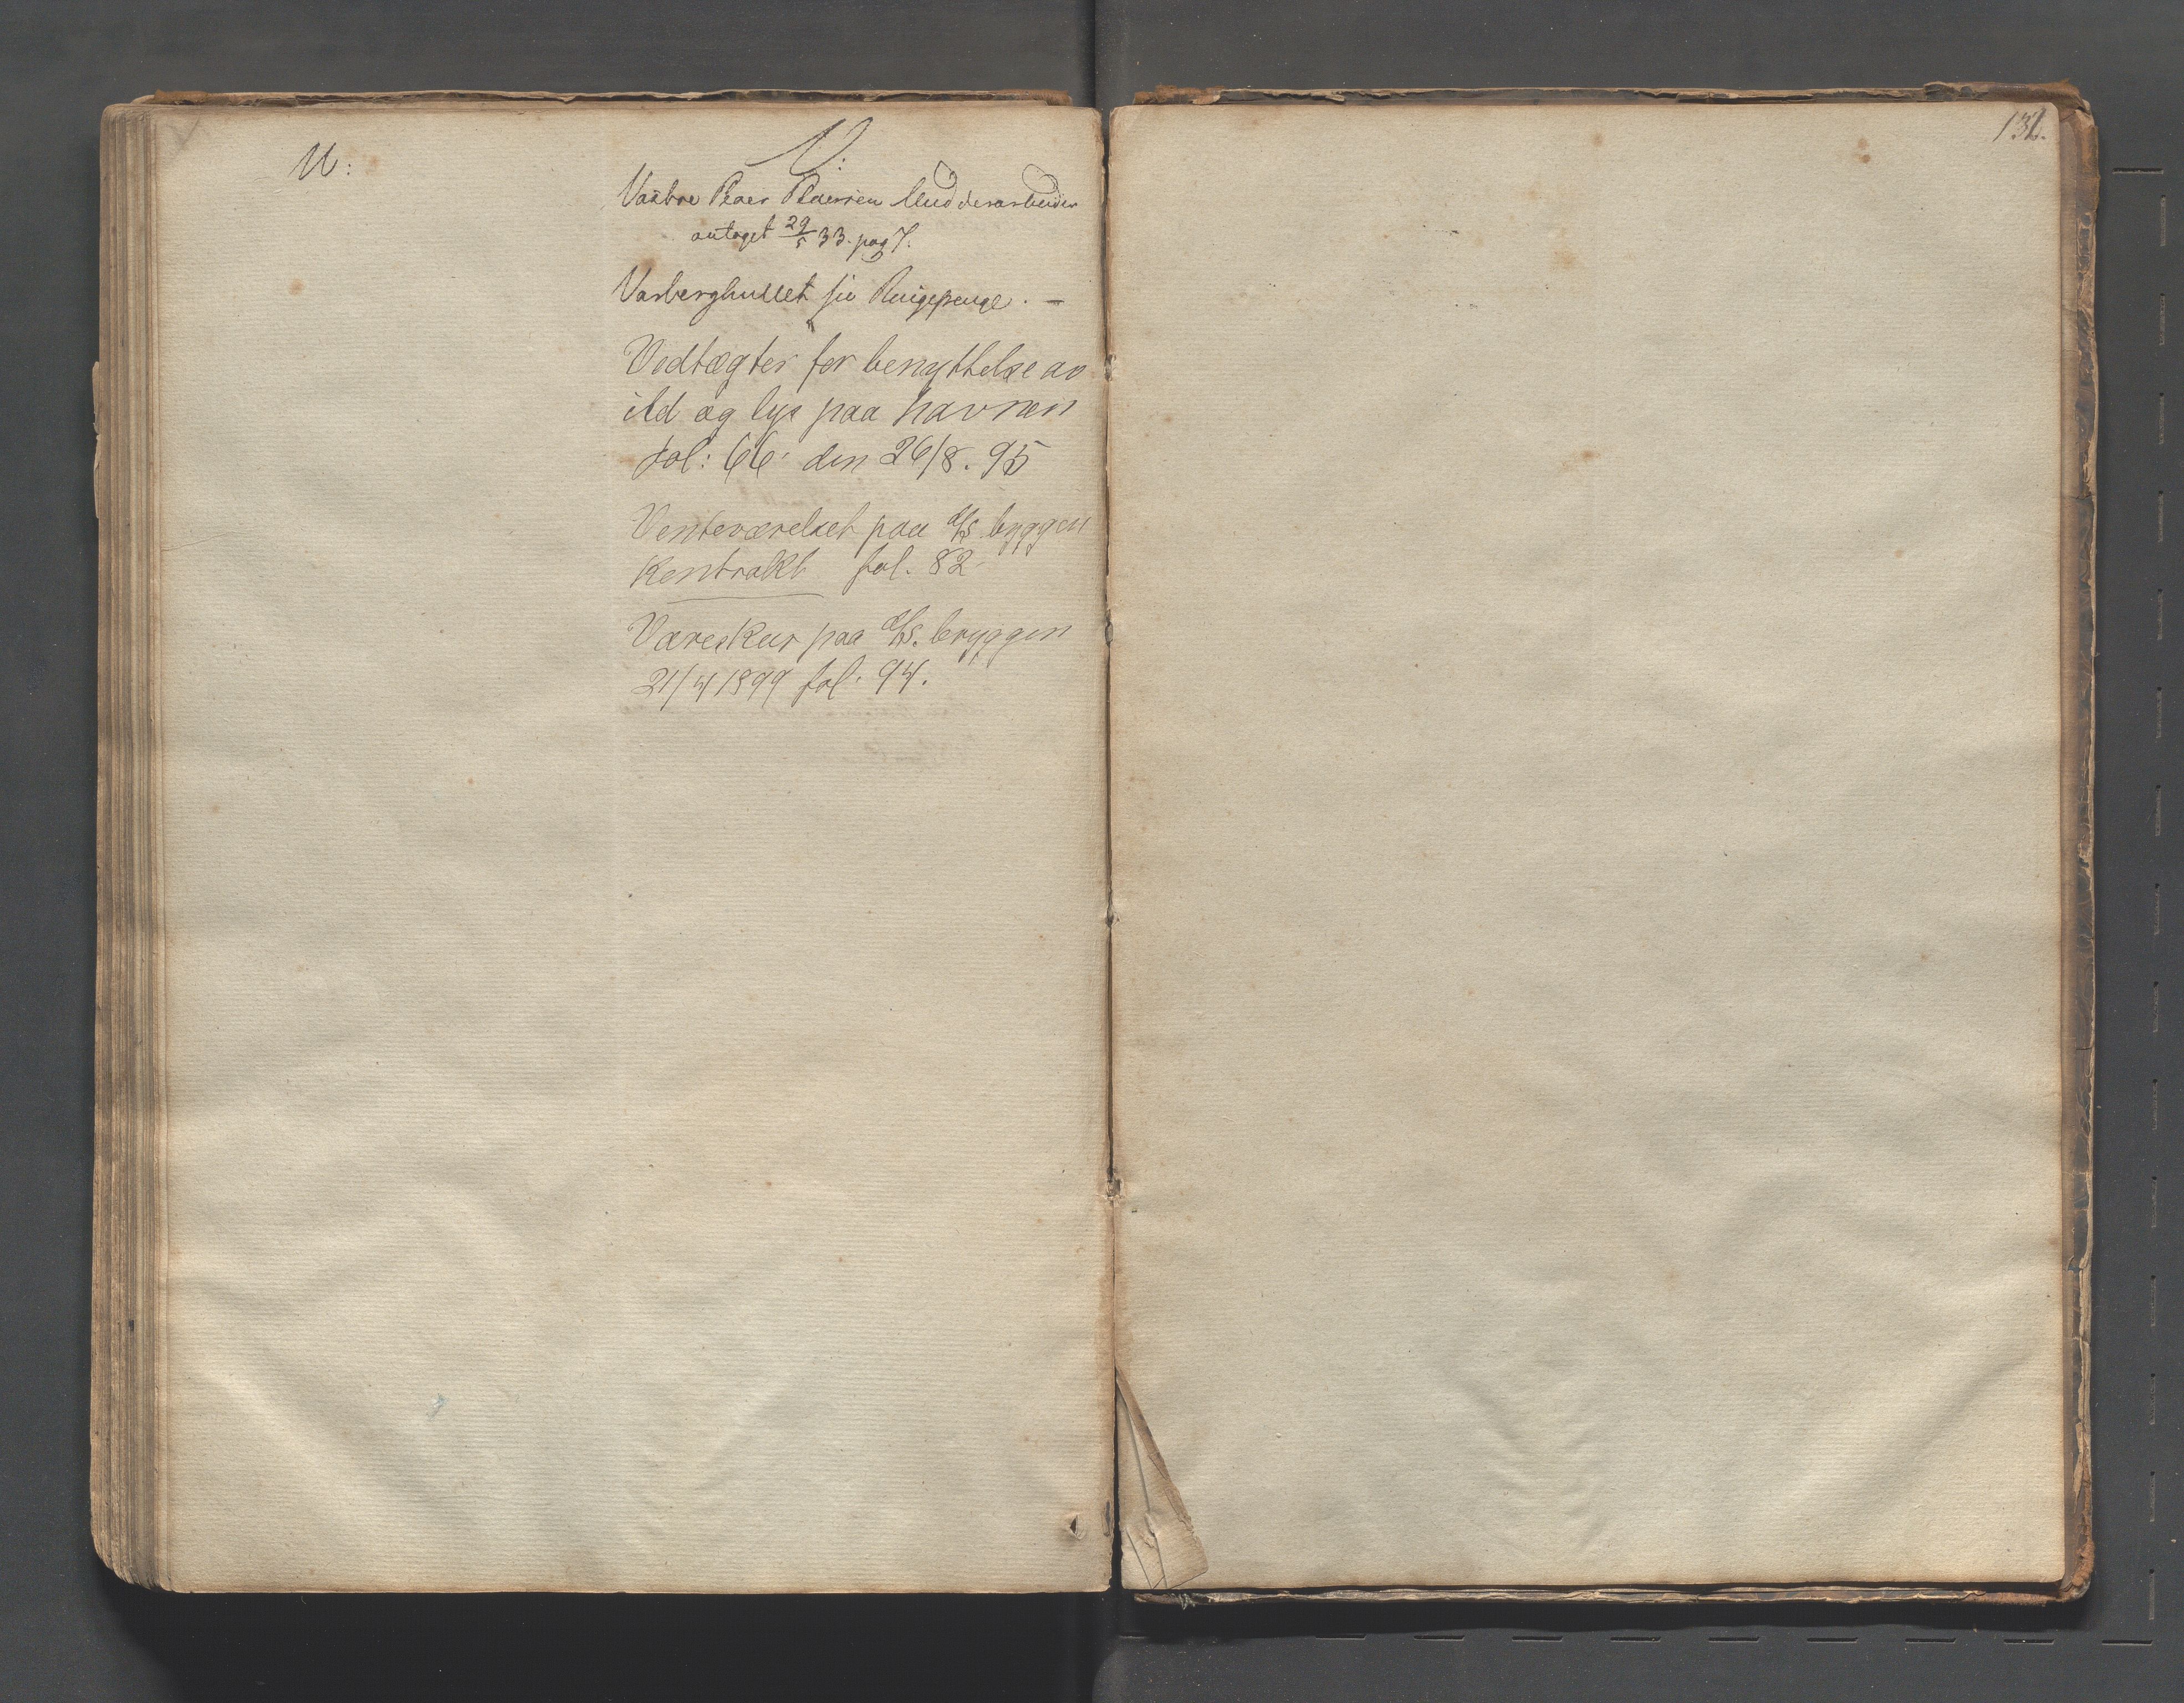 U:
V:
Vasboe Peder Pedersen Mudderarbeider
antaget 29/5 33. pag 7.
Varberghullet sie Ringepenge. —
Vedtægter for benyttelse av
ild og lys paa havnen
fol: 66 den 26/8. 95
Venteværelset paa d/s. bryggen
Kontrakt fol. 82
Vareskur paa d/s. bryggen
21/4 1899 fol. 94.
131.